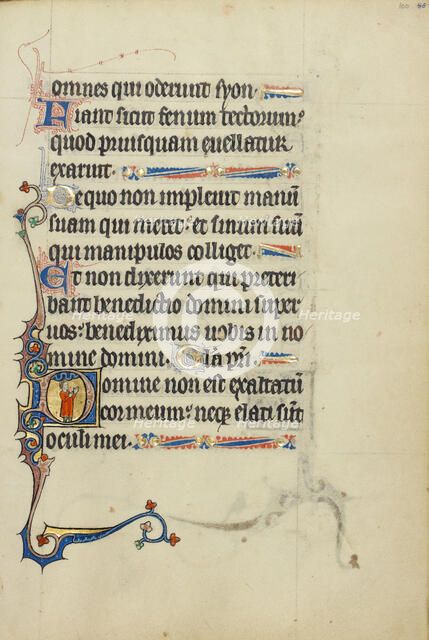 100 86
omnes qui oderunt syon.
Fiant sicut fenum tectorum:
quod priusquam euellatur
exaruit.
De quo non impleuit manū
suam qui metet: et sinum suū
qui manipulos colliget.
Et non dixerunt qui preteri
bant benedictio domini super
uos: benediximus uobis in no
mine domini. Gl̄ia pr̄i.
Domine non est exaltatū
cor meum: neqȝ elati sūt
oculi mei.
Heritage
Heritage
Heritage
Heritage
Heritage
Heritage